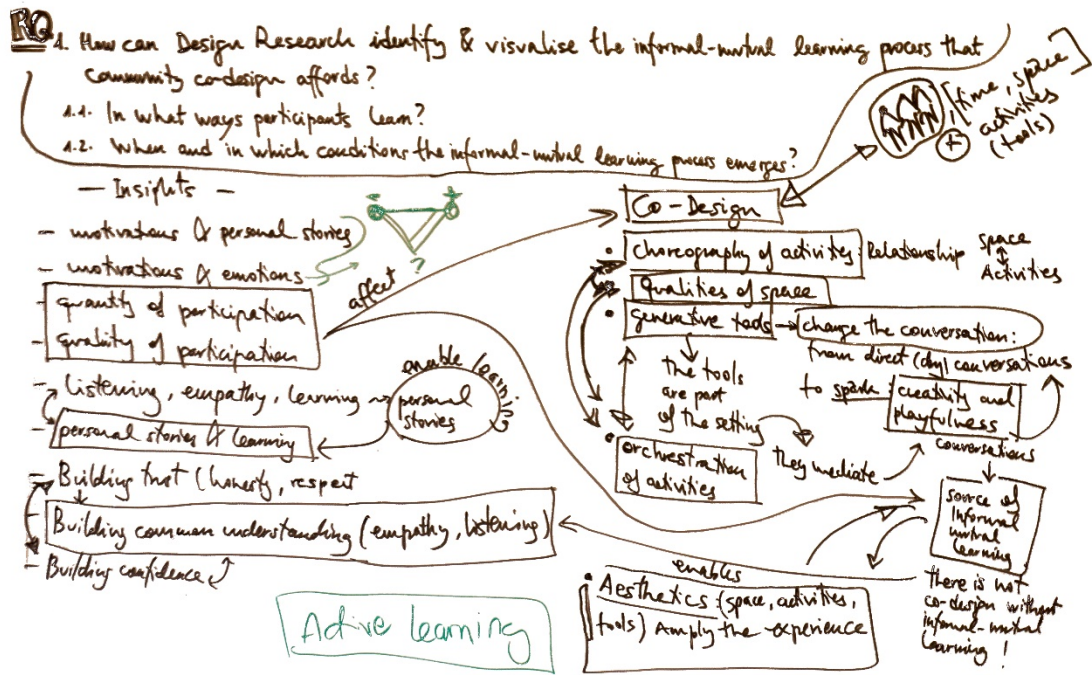 RQ 1. How can Design Research identify & visualise the informal-mutual learning process that
community co-design affords?
1.1. In what ways participants learn?
1.2. When and in which conditions the informal-mutual learning process emerges?
[time, space]
activities
(tools)
+
— Insights —
- motivations & personal stories
- motivations & emotions
?
- quantity of participation
- quality of participation
affect
- listening, empathy, learning
enable learning
personal
stories
- personal stories & learning
- Building trust (honesty, respect
- Building common understanding (empathy, listening)
- Building confidence
Active learning
Co-Design
• choreography of activities: Relationship
space
Activities
• qualities of space
• generative tools
change the conversation:
from direct (dry) conversations
to spark
creativity and
playfulness
conversations
the tools
are part
of the setting
they mediate
• orchestration
of activities
source of
informal
mutual
learning
enables
• Aesthetics (space, activities,
tools) Amply the experience
there is not
co-design without
informal-mutual
learning!